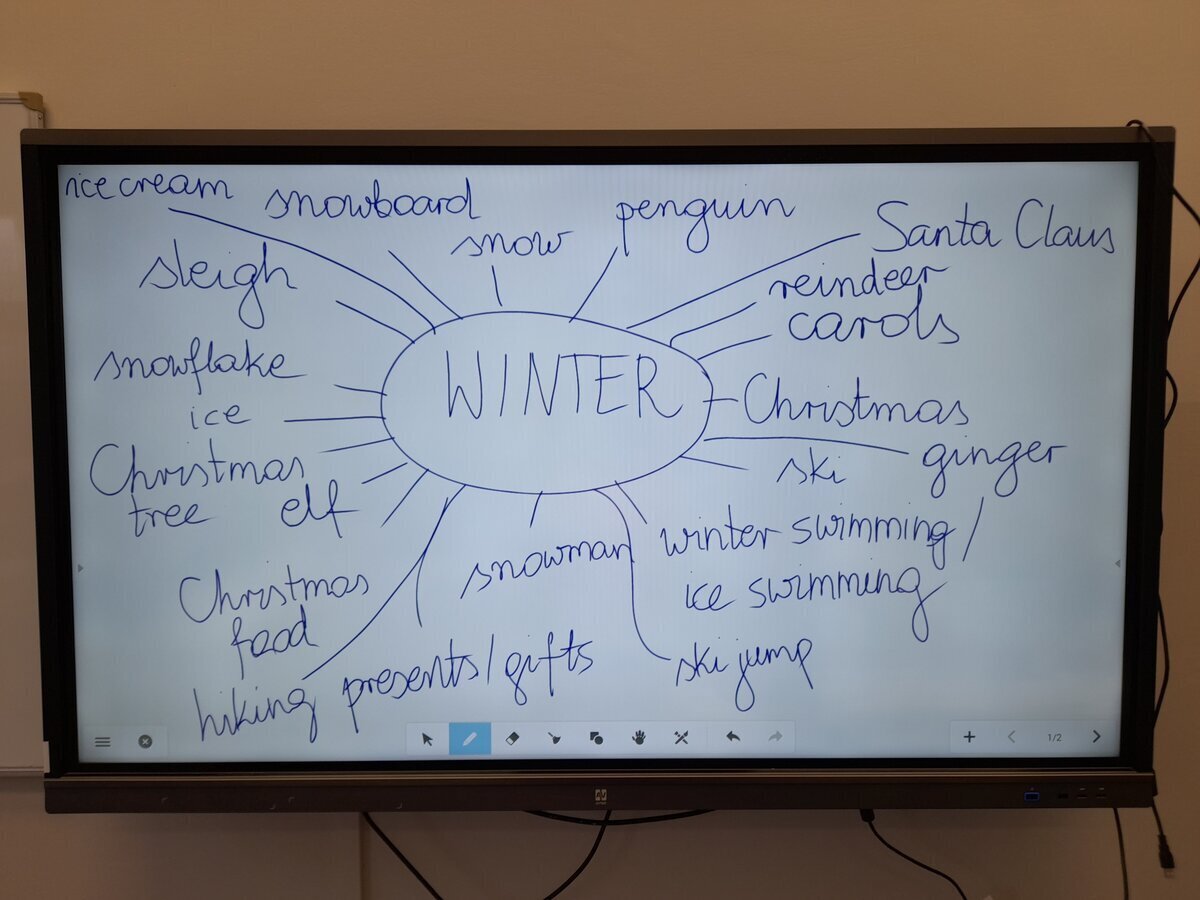 ice cream
snowboard
penguin
snow
Santa Claus
sleigh
reindeer
carols
snowflake
WINTER
ice
Christmas
Christmas
tree
elf
ski
ginger
winter swimming /
ice swimming
snowman
Christmas
food
hiking
presents/gifts
ski jump
1/2